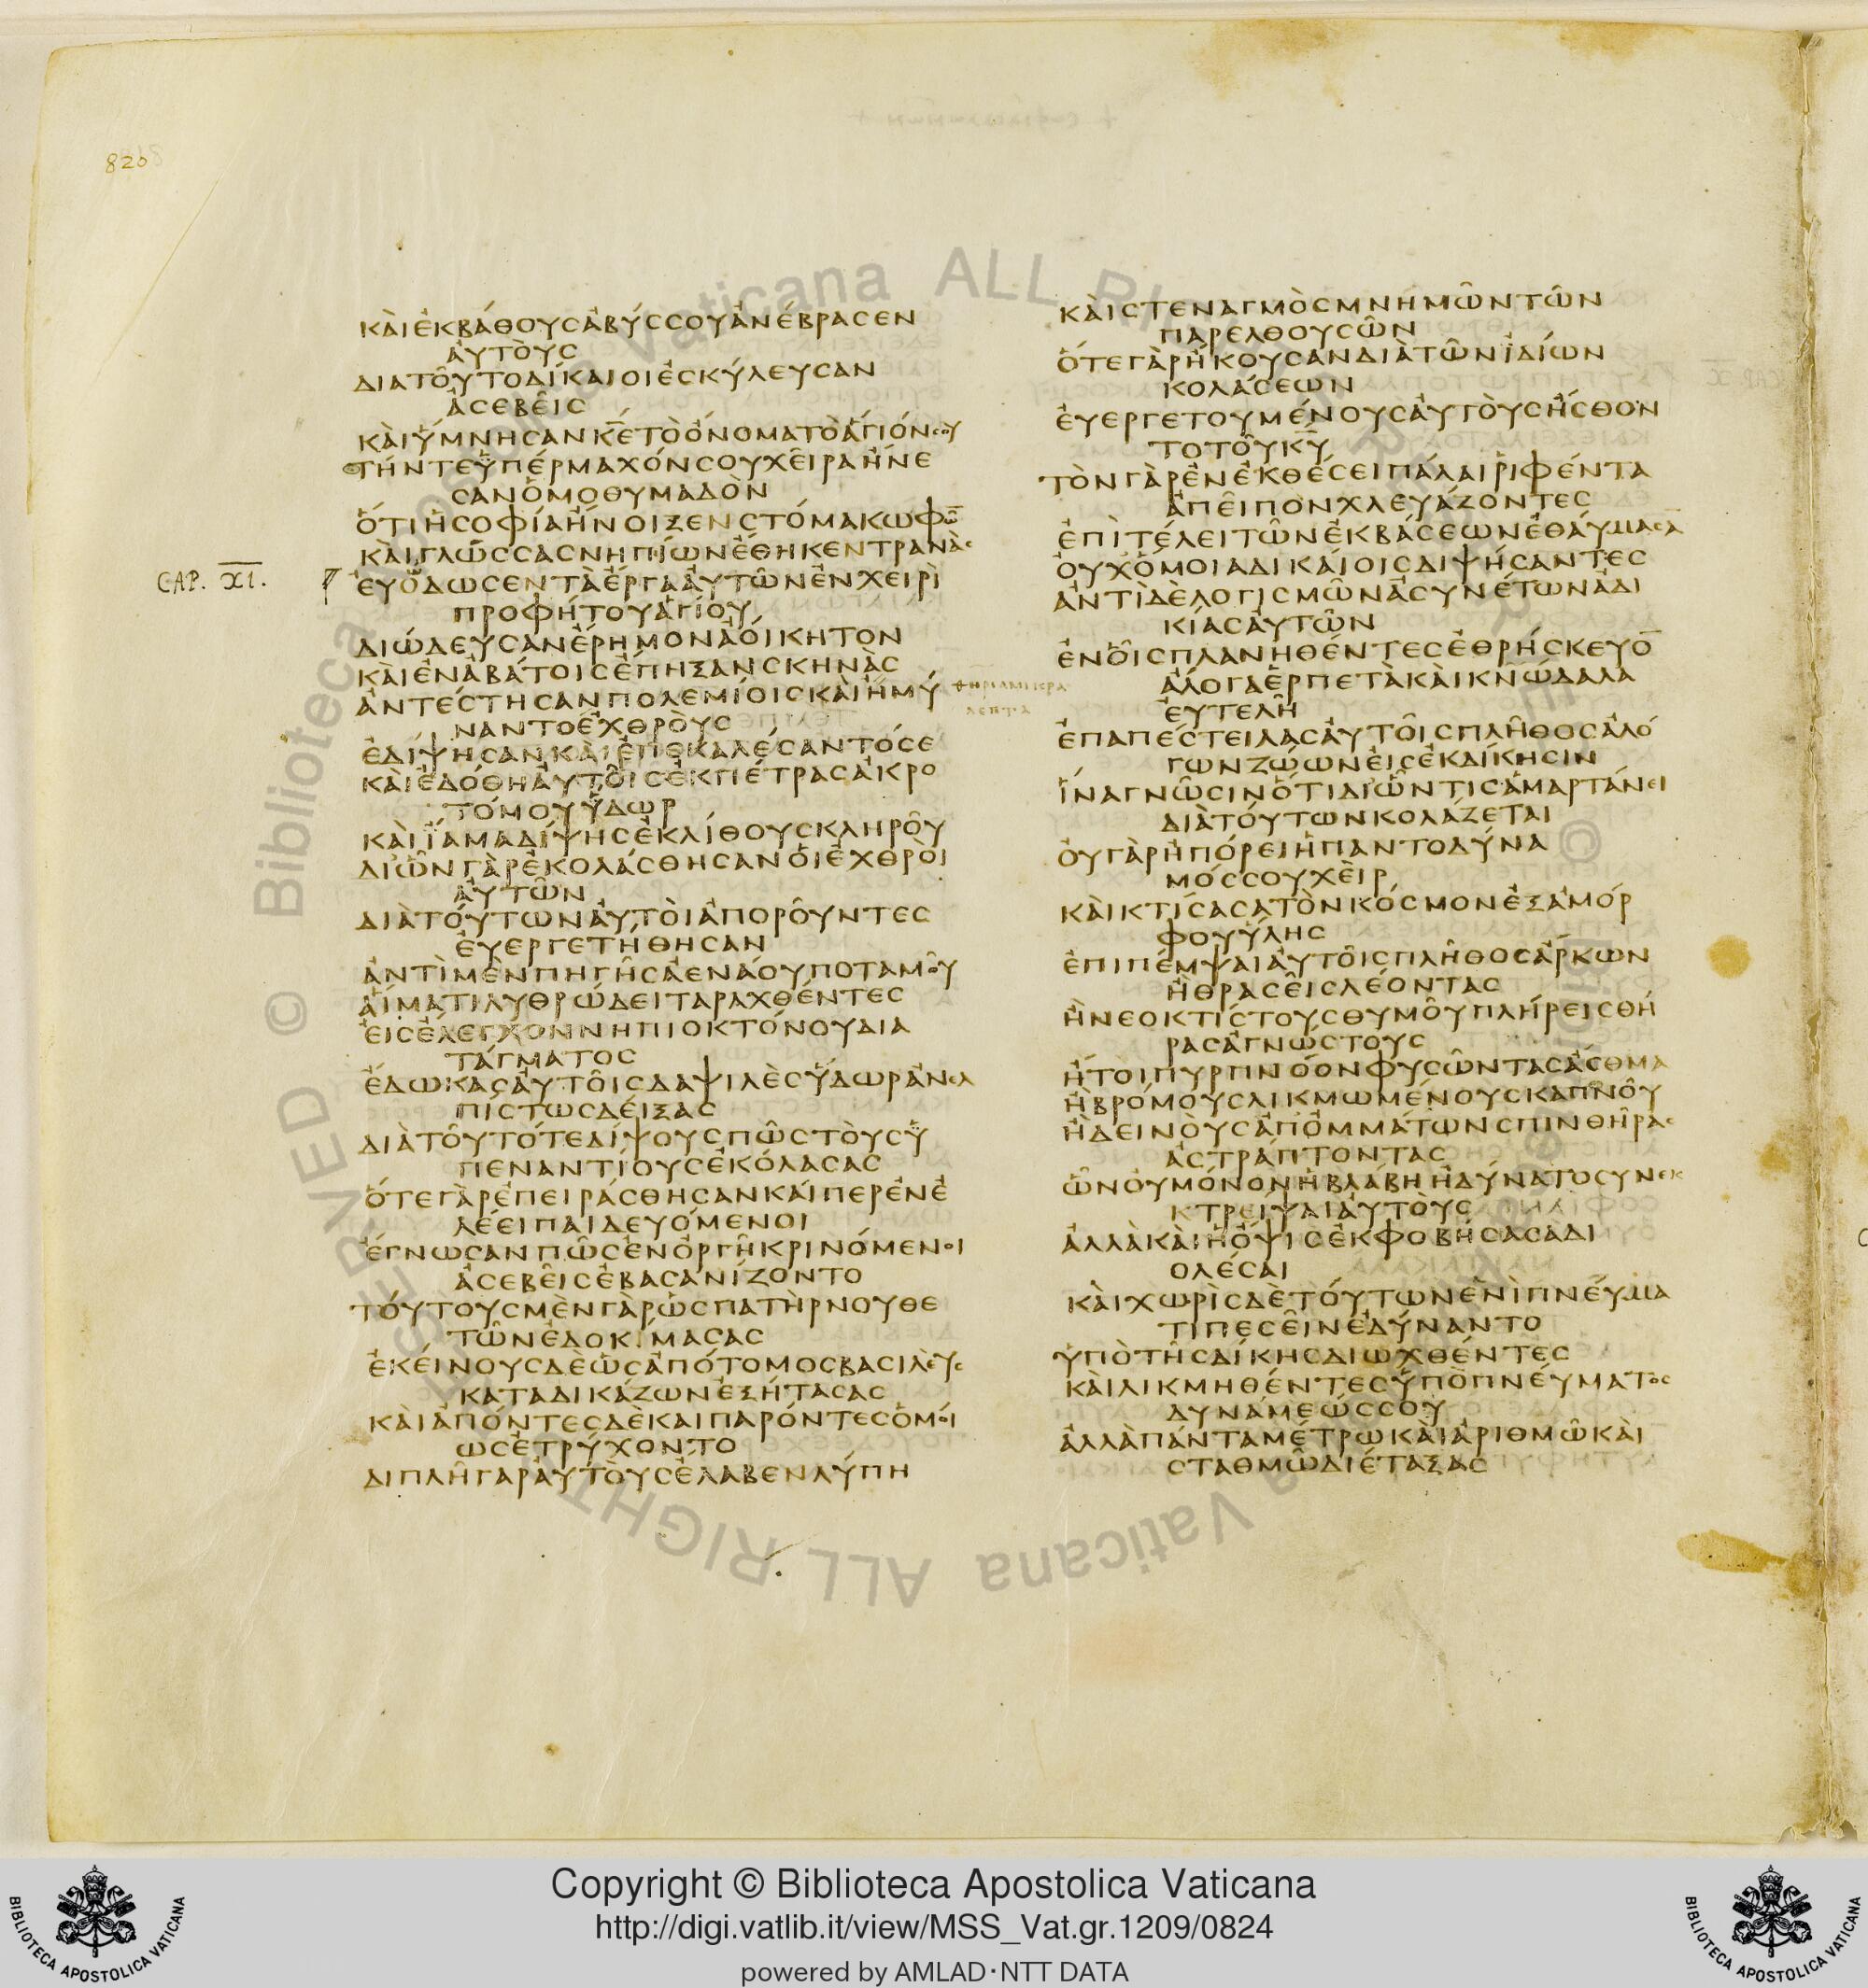 + σοφία σαλομών +
820
ΚΑΙΕΚΒΑΘΟΥΣΑΒΥΣΣΟΥΑΝΕΒΡΑΣΕΝ
ΑΥΤΟΥΣ
ΔΙΑΤΟΥΤΟΔΙΚΑΙΟΙΕΣΚΥΛΕΥΣΑΝ
ΑΣΕΒΕΙΣ
ΚΑΙΥΜΝΗΣΑΝΚ̅Ε̅ΤΟΟΝΟΜΑΤΟΑΓΙΟΝΣΟΥ
ΤΗΝΤΕΥΠΕΡΜΑΧΟΝΣΟΥΧΕΙΡΑΗΝΕ
ΣΑΝΟΜΟΘΥΜΑΔΟΝ
ΟΤΙΗΣΟΦΙΑΗΝΟΙΞΕΝΣΤΟΜΑΚΩΦΩ̅
ΚΑΙΓΛΩΣΣΑΣΝΗΠΙΩΝΕΘΗΚΕΝΤΡΑΝΑΣ
CAP. XI.
ΕΥΟΔΩΣΕΝΤΑΕΡΓΑΑΥΤΩΝΕΝΧΕΙΡΙ
ΠΡΟΦΗΤΟΥΑΓΙΟΥ
ΔΙΩΔΕΥΣΑΝΕΡΗΜΟΝΑΟΙΚΗΤΟΝ
ΚΑΙΕΝΑΒΑΤΟΙΣΕΠΗΞΑΝΣΚΗΝΑΣ
ΑΝΤΕΣΤΗΣΑΝΠΟΛΕΜΙΟΙΣΚΑΙΗΜΥ
ΝΑΝΤΟΕΧΘΡΟΥΣ
ΕΔΙΨΗΣΑΝΚΑΙΕΠΕΚΑΛΕΣΑΝΤΟΣΕ
ΚΑΙΕΔΟΘΗΑΥΤΟΙΣΕΚΠΕΤΡΑΣΑΚΡΟ
ΤΟΜΟΥΥΔΩΡ
ΚΑΙΙΑΜΑΔΙΨΗΣΕΚΛΙΘΟΥΣΚΛΗΡΟΥ
ΔΙΩΝΓΑΡΕΚΟΛΑΣΘΗΣΑΝΟΙΕΧΘΡΟΙ
ΑΥΤΩΝ
ΔΙΑΤΟΥΤΩΝΑΥΤΟΙΑΠΟΡΟΥΝΤΕΣ
ΕΥΕΡΓΕΤΗΘΗΣΑΝ
ΑΝΤΙΜΕΝΠΗΓΗΣΑΕΝΑΟΥΠΟΤΑΜΟΥ
ΑΙΜΑΤΙΛΥΘΡΩΔΕΙΤΑΡΑΧΘΕΝΤΕΣ
ΕΙΣΕΛΕΓΧΟΝΝΗΠΙΟΚΤΟΝΟΥΔΙΑ
ΤΑΓΜΑΤΟΣ
ΕΔΩΚΑΣΑΥΤΟΙΣΔΑΨΙΛΕΣΥΔΩΡΑΝΕΛ
ΠΙΣΤΩΣΔΕΙΞΑΣ
ΔΙΑΤΟΥΤΟΤΕΔΙΨΟΥΣΠΩΣΤΟΥΣΥ
ΠΕΝΑΝΤΙΟΥΣΕΚΟΛΑΣΑΣ
ΟΤΕΓΑΡΕΠΕΙΡΑΣΘΗΣΑΝΚΑΙΠΕΡΕΝΕ
ΛΕΕΙΠΑΙΔΕΥΟΜΕΝΟΙ
ΕΓΝΩΣΑΝΠΩΣΕΝΟΡΓΗΚΡΙΝΟΜΕΝΟΙ
ΑΣΕΒΕΙΣΕΒΑΣΑΝΙΖΟΝΤΟ
ΤΟΥΤΟΥΣΜΕΝΓΑΡΩΣΠΑΤΗΡΝΟΥΘΕ
ΤΩΝΕΔΟΚΙΜΑΣΑΣ
ΕΚΕΙΝΟΥΣΔΕΩΣΑΠΟΤΟΜΟΣΒΑΣΙΛΕΥΣ
ΚΑΤΑΔΙΚΑΖΩΝΕΞΗΤΑΣΑΣ
ΚΑΙΑΠΟΝΤΕΣΔΕΚΑΙΠΑΡΟΝΤΕΣΟΜΟΙ
ΩΣΕΤΡΥΧΟΝΤΟ
ΔΙΠΛΗΓΑΡΑΥΤΟΥΣΕΛΑΒΕΝΛΥΠΗ
ΚΑΙΣΤΕΝΑΓΜΟΣΜΝΗΜΩΝΤΩΝ
ΠΑΡΕΛΘΟΥΣΩΝ
ΟΤΕΓΑΡΗΚΟΥΣΑΝΔΙΑΤΩΝΙΔΙΩΝ
ΚΟΛΑΣΕΩΝ
ΕΥΕΡΓΕΤΟΥΜΕΝΟΥΣΑΥΤΟΥΣΗΣΘΟΝ
ΤΟΤΟΥΚ̅Υ̅
ΤΟΝΓΑΡΕΝΕΚΘΕΣΕΙΠΑΛΑΙΡΙΦΕΝΤΑ
ΑΠΕΙΠΟΝΧΛΕΥΑΖΟΝΤΕΣ
ΕΠΙΤΕΛΕΙΤΩΝΕΚΒΑΣΕΩΝΕΘΑΥΜΑΣΑ̅
ΟΥΧΟΜΟΙΑΔΙΚΑΙΟΙΣΔΙΨΗΣΑΝΤΕΣ
ΑΝΤΙΔΕΛΟΓΙΣΜΩΝΑΣΥΝΕΤΩΝΑΔΙ
ΚΙΑΣΑΥΤΩΝ
ΕΝΟΙΣΠΛΑΝΗΘΕΝΤΕΣΕΘΡΗΣΚΕΥΟ̅
ΑΛΟΓΑΕΡΠΕΤΑΚΑΙΚΝΩΔΑΛΑ
ΕΥΤΕΛΗ
θηρία μικρα
λεπτα
ΕΠΑΠΕΣΤΕΙΛΑΣΑΥΤΟΙΣΠΛΗΘΟΣΑΛΟ
ΓΩΝΖΩΩΝΕΙΣΕΚΔΙΚΗΣΙΝ
ΙΝΑΓΝΩΣΙΝΟΤΙΔΙΩΝΤΙΣΑΜΑΡΤΑΝΕΙ
ΔΙΑΤΟΥΤΩΝΚΟΛΑΖΕΤΑΙ
ΟΥΓΑΡΗΠΟΡΕΙΗΠΑΝΤΟΔΥΝΑ
ΜΟΣΣΟΥΧΕΙΡ
ΚΑΙΚΤΙΣΑΣΑΤΟΝΚΟΣΜΟΝΕΞΑΜΟΡ
ΦΟΥΥΛΗΣ
ΕΠΙΠΕΜΨΑΙΑΥΤΟΙΣΠΛΗΘΟΣΑΡΚΩΝ
ΗΘΡΑΣΕΙΣΛΕΟΝΤΑΣ
ΗΝΕΟΚΤΙΣΤΟΥΣΘΥΜΟΥΠΛΗΡΕΙΣΘΗ
ΡΑΣΑΓΝΩΣΤΟΥΣ
ΗΤΟΙΠΥΡΠΝΟΟΝΦΥΣΩΝΤΑΣΑΣΘΜΑ
ΗΒΡΟΜΟΥΣΛΙΚΜΩΜΕΝΟΥΣΚΑΠΝΟΥ
ΗΔΕΙΝΟΥΣΑΠΟΜΜΑΤΩΝΣΠΙΝΘΗΡΑΣ
ΑΣΤΡΑΠΤΟΝΤΑΣ
ΩΝΟΥΜΟΝΟΝΗΒΛΑΒΗΗΔΥΝΑΤΟΣΥΝΕΚ
ΚΤΡΕΙΨΑΙΑΥΤΟΥΣ
ΑΛΛΑΚΑΙΗΟΨΙΣΕΚΦΟΒΗΣΑΣΑΔΙ
ΟΛΕΣΑΙ
ΚΑΙΧΩΡΙΣΔΕΤΟΥΤΩΝΕΝΙΠΝΕΥΜΑ
ΤΙΠΕΣΕΙΝΕΔΥΝΑΝΤΟ
ΥΠΟΤΗΣΔΙΚΗΣΔΙΩΧΘΕΝΤΕΣ
ΚΑΙΛΙΚΜΗΘΕΝΤΕΣΥΠΟΠΝΕΥΜΑΤΟΣ
ΔΥΝΑΜΕΩΣΣΟΥ
ΑΛΛΑΠΑΝΤΑΜΕΤΡΩΚΑΙΑΡΙΘΜΩΚΑΙ
ΣΤΑΘΜΩΔΙΕΤΑΞΑΣ
© Biblioteca Apostolica Vaticana ALL RIGHTS RESERVED
Copyright © Biblioteca Apostolica Vaticana
http://digi.vatlib.it/view/MSS_Vat.gr.1209/0824
powered by AMLAD·NTT DATA
BIBLIOTECA APOSTOLICA VATICANA
BIBLIOTECA APOSTOLICA VATICANA